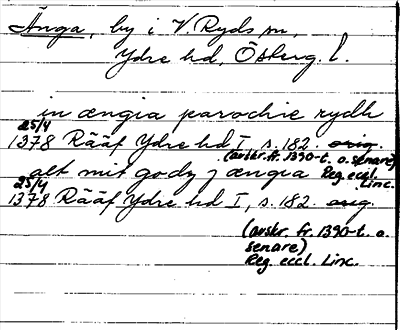 Änga, by i V. Ryds sn,
Ydre hd, Österg. l.
in ængia parochie rydh
25/4
1378 Rääf Ydre hd I, s. 182. orig.
(avskr. fr. 1390-t. o. senare)
Reg. eccl. Linc.
alt mit godz j ængia
25/4
1378 Rääf Ydre hd I, s. 182. orig.
(avskr. fr. 1390-t. o.
senare)
Reg. eccl. Linc.